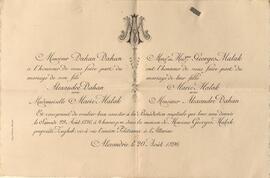 Monsieur Dahan Dahan
a l'honneur de vous faire part du
mariage de son fils
Alexandre Dahan
Mademoiselle Marie Malak
Mr. et Mme. Georges Malak
ont l'honneur de vous faire part du
mariage de leur fille
Marie Malak
Monsieur Alexandre Dahan
Et vous prient de vouloir bien assister à la Bénédiction nuptiale qui leur sera donnée
le Samedi 29 Août 1896, à heures p.m. dans la maison de Monsieur Georges Malak
propriété
Alexandrie le 20 Août 1896